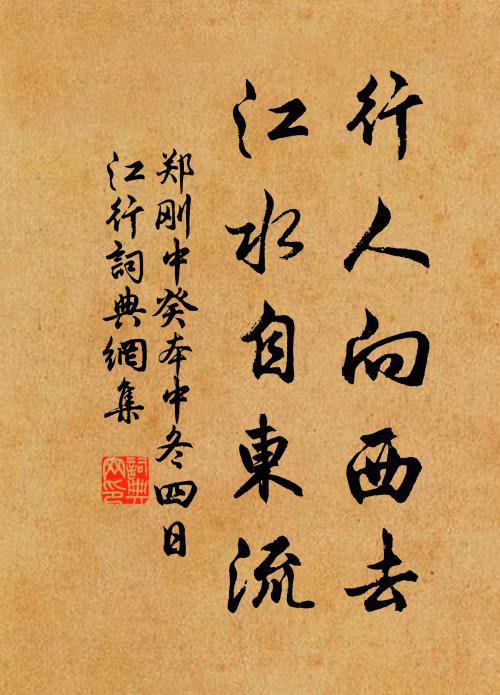 行人向西去
江水自東流
郑刚中癸本中冬四日
江行詞典網集
詞典
网印